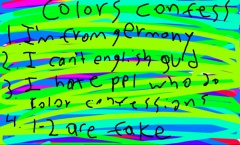 Colors confess
1 I'm from germany
2 I can't english gud
3 I hate ppl who do
color confessions
4. 1-2 are fake